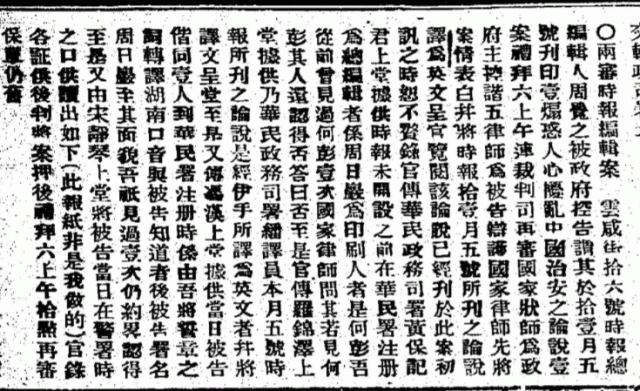 ○兩審時報編輯案　雲咸街拾六號時報總
編輯人周覺之被政府控告謂其於拾壹月五
號刊印壹煽惑人心擾亂中國治安之論說壹
案禮拜六上午連裁判司再審國家狀師為政
府主控諧五律師為被告辯護國家律師先將
案情表白并將時報拾壹月五號所刋之論說
譯爲英文呈官覽閱該論說已經刋於此案初
訊之時恕不贅錄官傳華民政務司署黃保記
君上堂據供時報未開設之前在華民署注册
爲總編輯者係周日嚴爲印刷人者是何彭吾
從前曾見過何彭壹次國家律師問其若見何
彭其人還認得否答曰否至是官傳羅錦澤上
堂據供乃華民政務司署繙譯員本月五號時
報所刋之論說是經伊手所譯爲英文者幷將
譯文呈堂至是又傳馮漢上堂據供當日被告
偕同壹人到華民署注册時係由吾將誓章之
詞轉譯湖南口音與被告知道者後被告署名
周日嚴至其面貌吾祇見過壹次仍約畧認得
至是又由宋靜琴上堂將被告當日在警署時
之口供讀出如下(此報紙非是我做的)官錄
各証供後判將案押後禮拜六上午拾點再審
保單仍舊